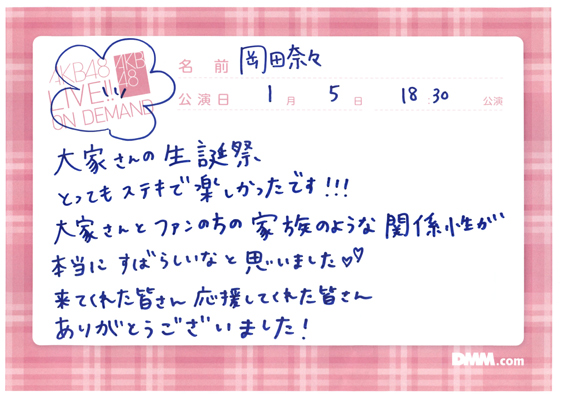 AKB48
LIVE!!
ON DEMAND
AKB
48
名前 岡田奈々
公演日 1月 5日 18:30 公演
大家さんの生誕祭、
とってもステキで楽しかったです!!!
大家さんとファンの方の家族のような関係性が
本当にすばらしいなと思いました♡♡
来てくれた皆さん 応援してくれた皆さん
ありがとうございました!
DMM.com